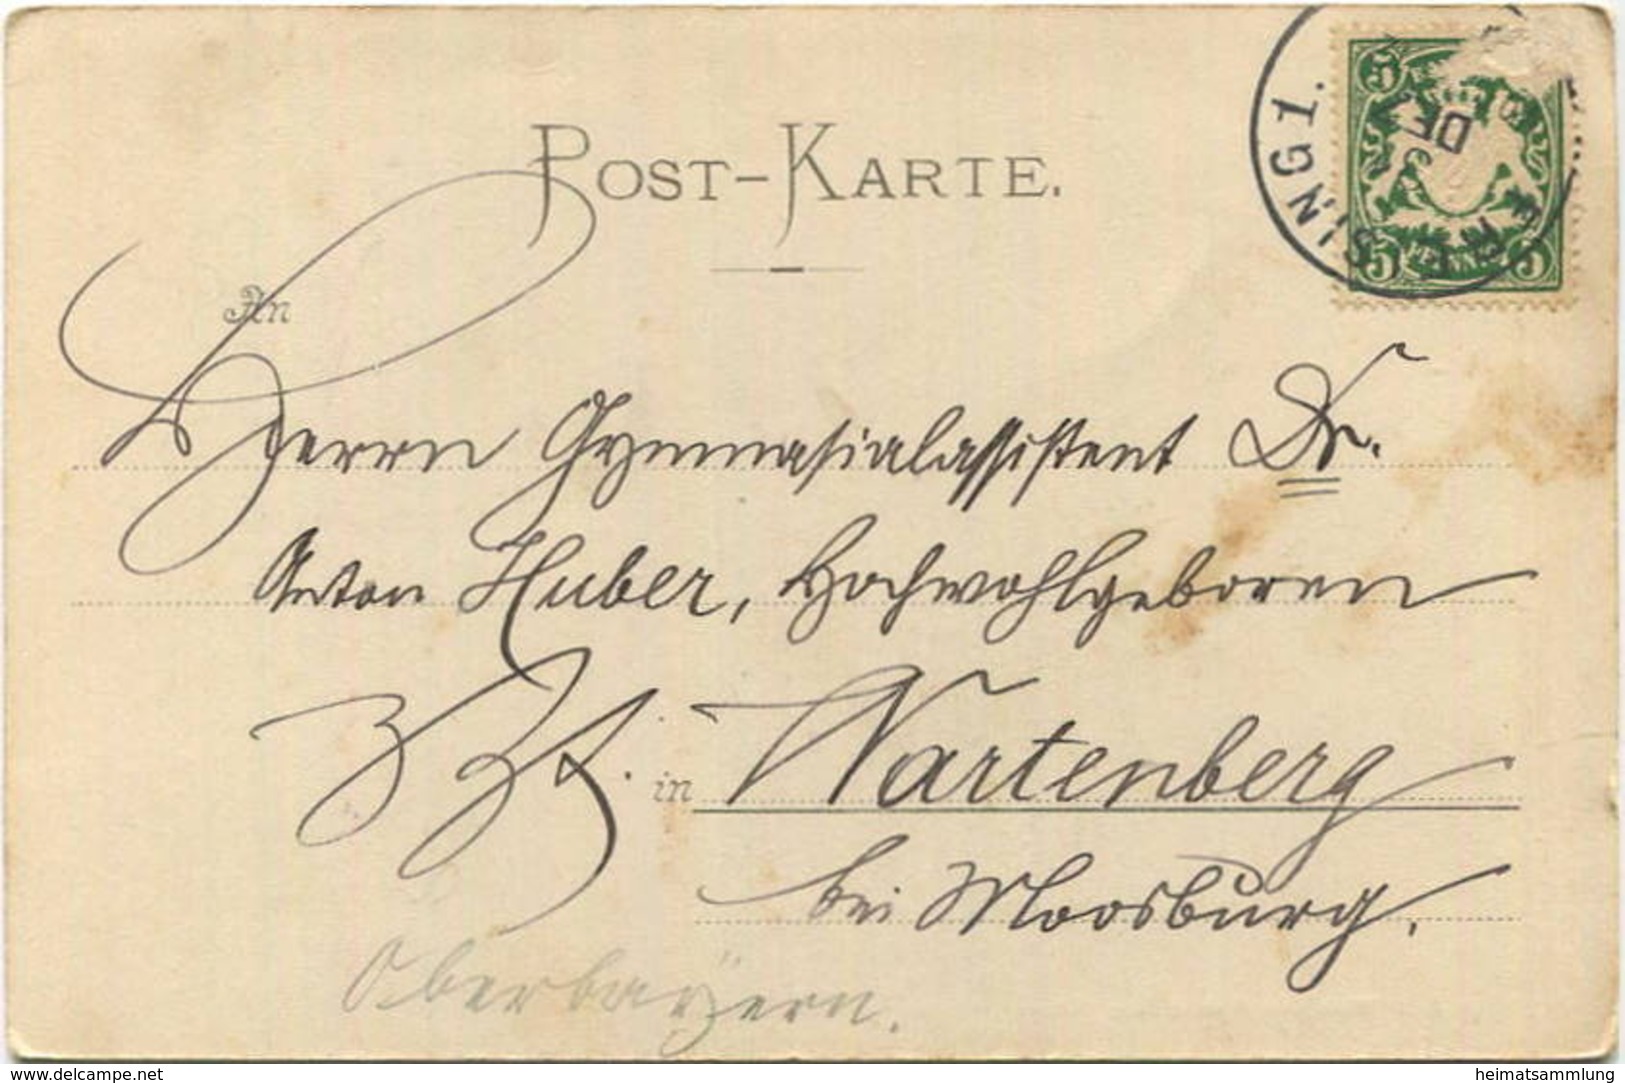 POST-KARTE.
An
Herrn Gymnasialassistent Dr.
Anton Huber, Hochwohlgeboren
z. Zt. in Wartenberg
bei Moosburg.
Oberbayern.
FREISING 1.
DEZ
5 5
5 PFENNIG 5
www.delcampe.net
heimatsammlung